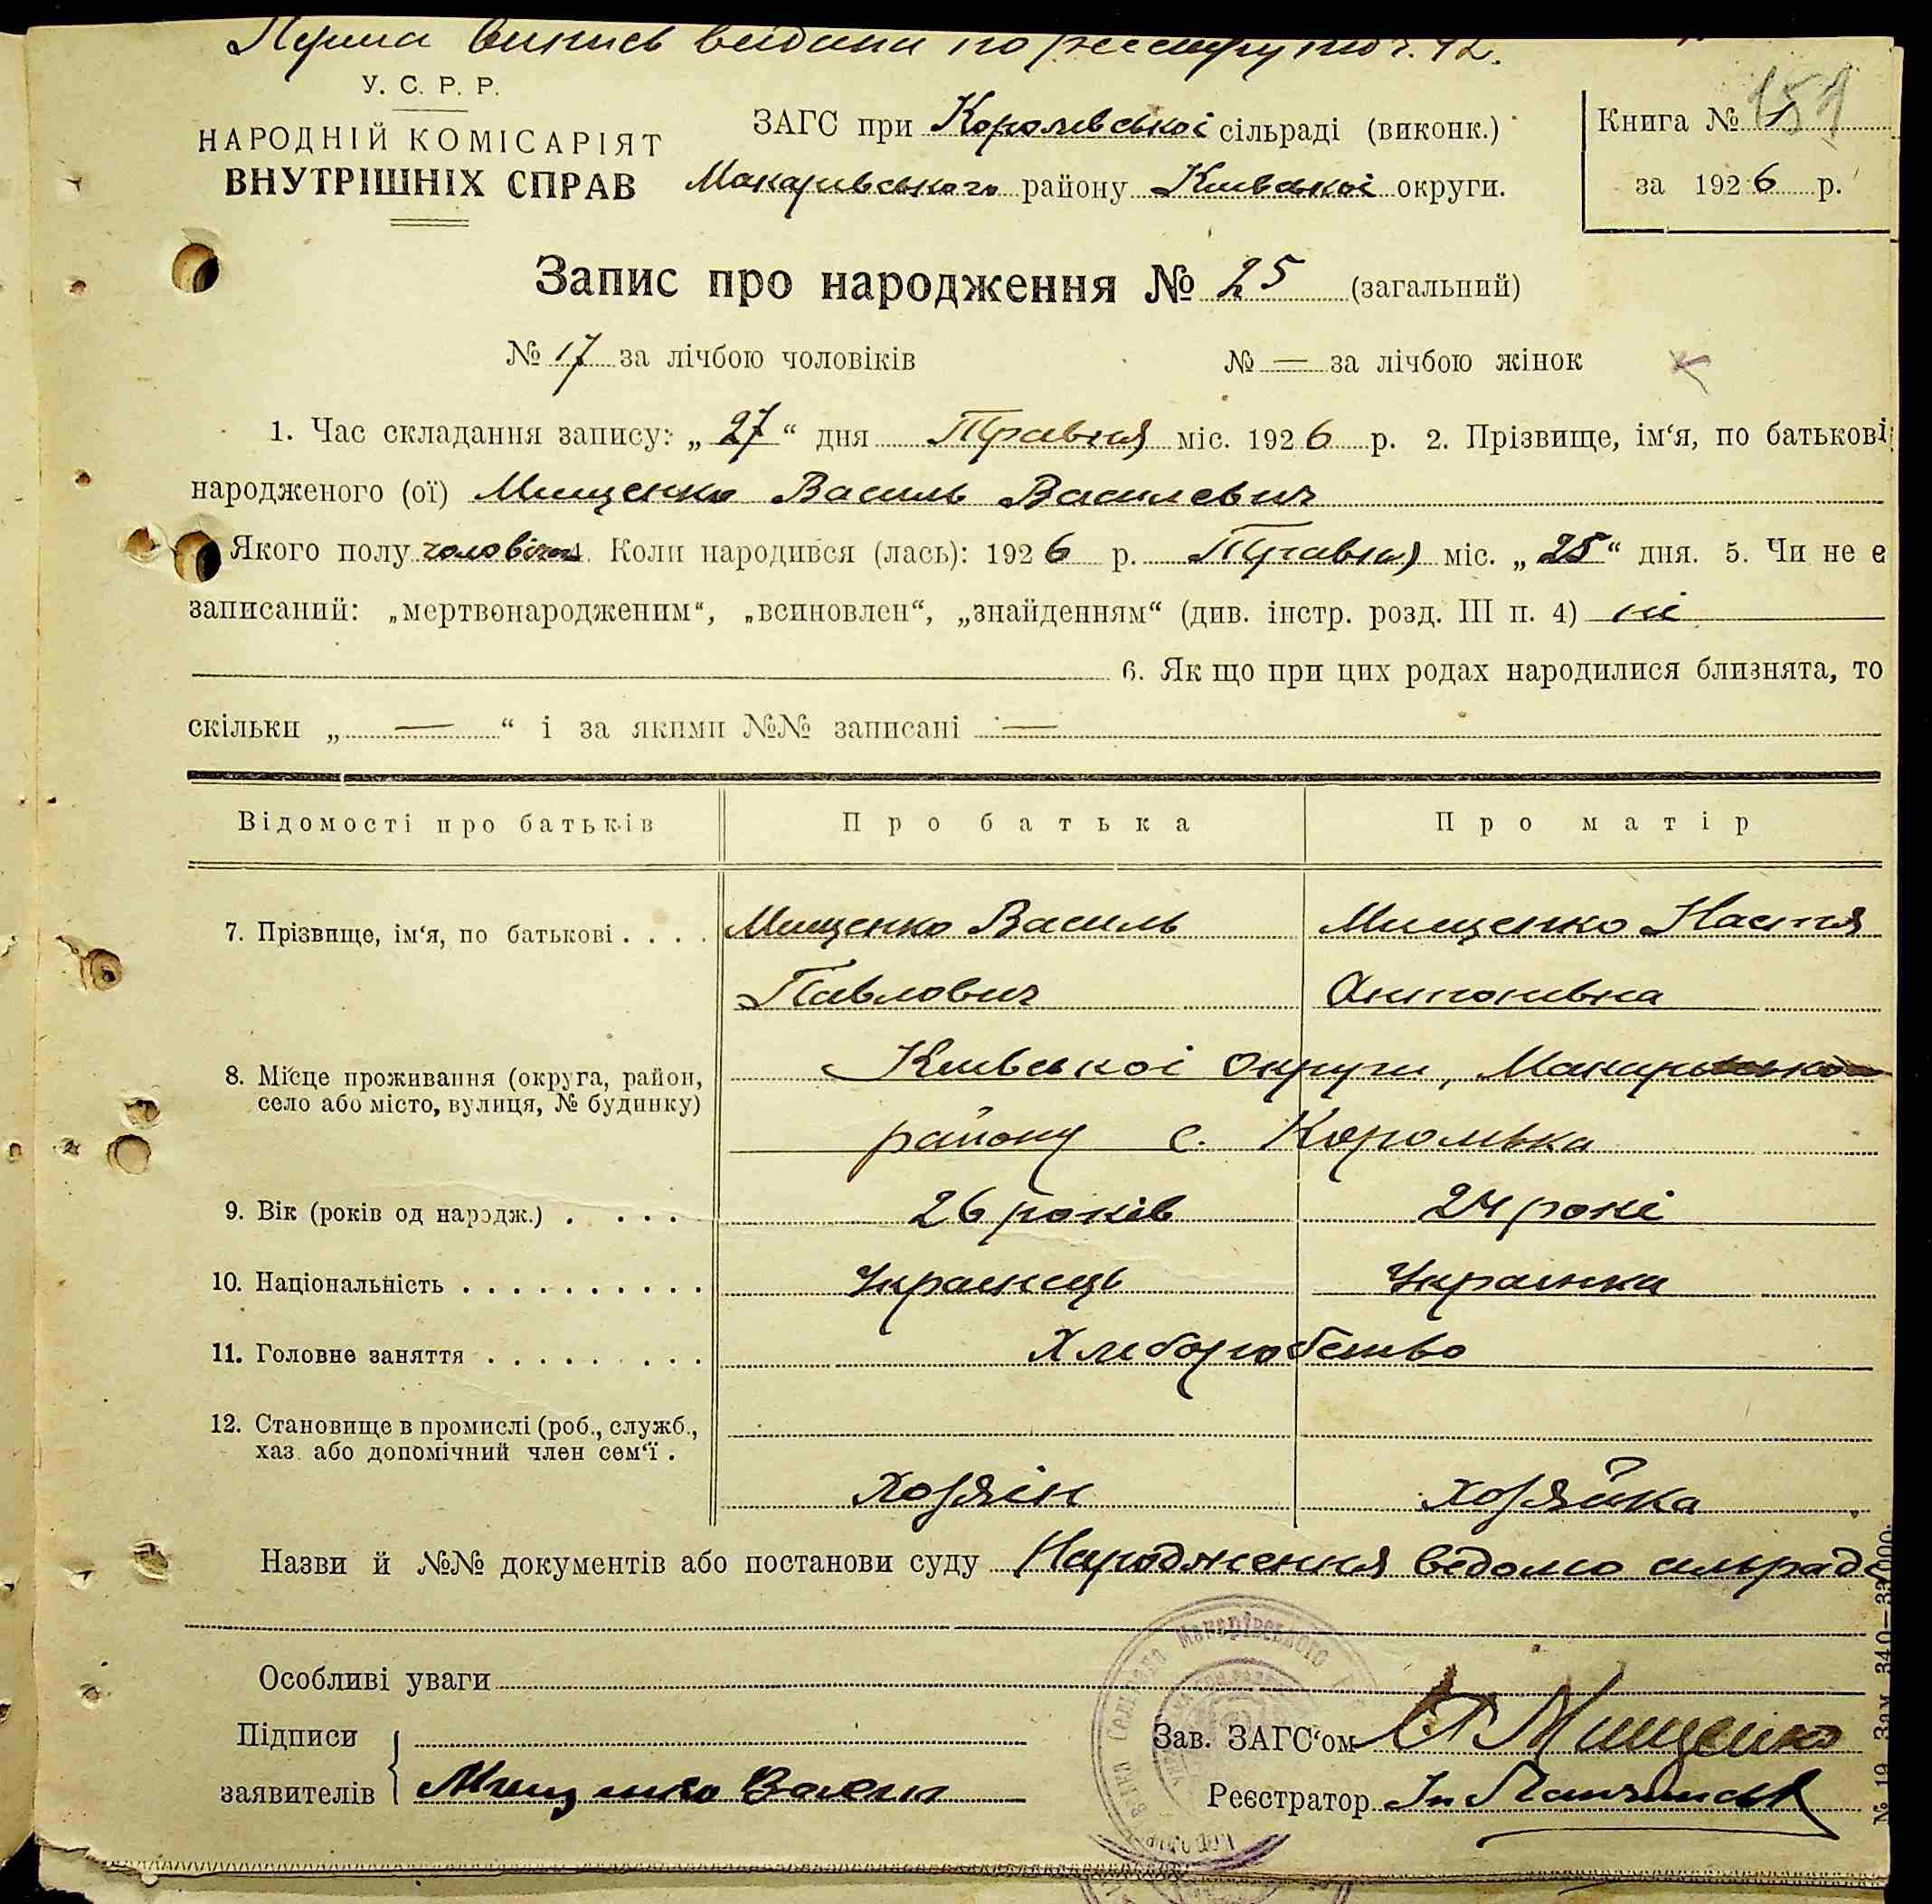 Перша випись видана по реєстру
У. С. Р. Р.
НАРОДНІЙ КОМІСАРІЯТ
ВНУТРІШНІХ СПРАВ
ЗАГС при Королевської сільраді (виконк.)
Макарівського району Київської округи.
Книга № 1
151
за 1926 р.
Запис про народження № 25 (загальний)
№ 17 за лічбою чоловіків № — за лічбою жінок
1. Час складання запису: „27“ дня Травня міс. 1926 р. 2. Прізвище, ім‘я, по батькові
народженого (ої) Мищенко Василь Василевич
Якого полу чоловічої. Коли народився (лась): 1926 р. Травня міс. „25“ дня. 5. Чи не є
записаний: „мертвонародженим“, „всиновлен“, „знайденням“ (див. інстр. розд. III п. 4) ні
6. Як що при цих родах народилися близнята, то
скільки „ — “ і за якими №№ записані —
Відомості про батьків Про батька Про матір
7. Прізвище, ім‘я, по батькові . . . . Мищенко Василь Мищенко Настя
Павлович Антонивна
8. Місце проживання (округа, район, Київської округи, Макаривсько
село або місто, вулиця, № будинку)
району с. Королівка
9. Вік (років од народж.) . . . . . 26 років 24 рокі
10. Національність . . . . . . . . . . Українець Українка
11. Головне заняття . . . . . . . . . Хліборобство
12. Становище в промислі (роб., служб.,
хаз. або допомічний член сем‘ї .
Хозяїн Хозяйка
Назви й №№ документів або постанови суду Народження ведомо сильраде
Особливі уваги
Підписи
Зав. ЗАГС‘ом Мищенко
заявителів Мищенко Васил
Реєстратор
№ 19 Зам. 340—33.000.
Макарівського